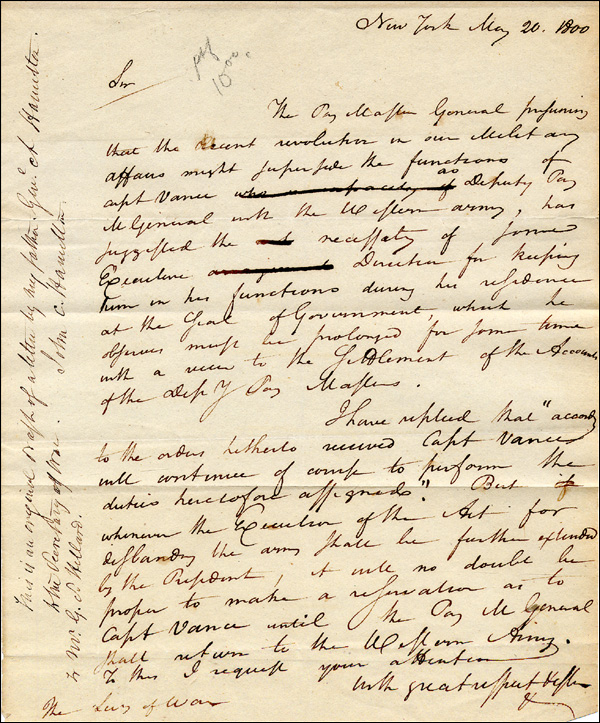 New York May 20. 1800
Sir
The Pay Master General presuming
that the recent revolution in our Military
affairs might supersede the functions of
capt Vance as Deputy Pay
M General with the Western army, has
suggested the necessity of some
Executive Direction for keeping
him in his functions during his residence
at the Seat of Government, which he
observes must be prolonged for some time
with a view to the Settlement of the Accounts
of the Dep Y Pay Masters.
I have replied that "according
to the orders hitherto received Capt Vance
will continue of course to perform the
duties heretofore assigned." But if
whenever the Execution of the Act for
disbanding the army shall be further extended
by the President, it will no doubt be
proper to make a reservation as to
Capt Vance until the Pay M General
shall return to the Western Army.
To this I request your attention
With great respect
The Secy of War
This is an original draft of a letter by my father Genl. A Hamilton
to the Secretary of War. John C. Hamilton.
to Mr. G. S. Hillard.